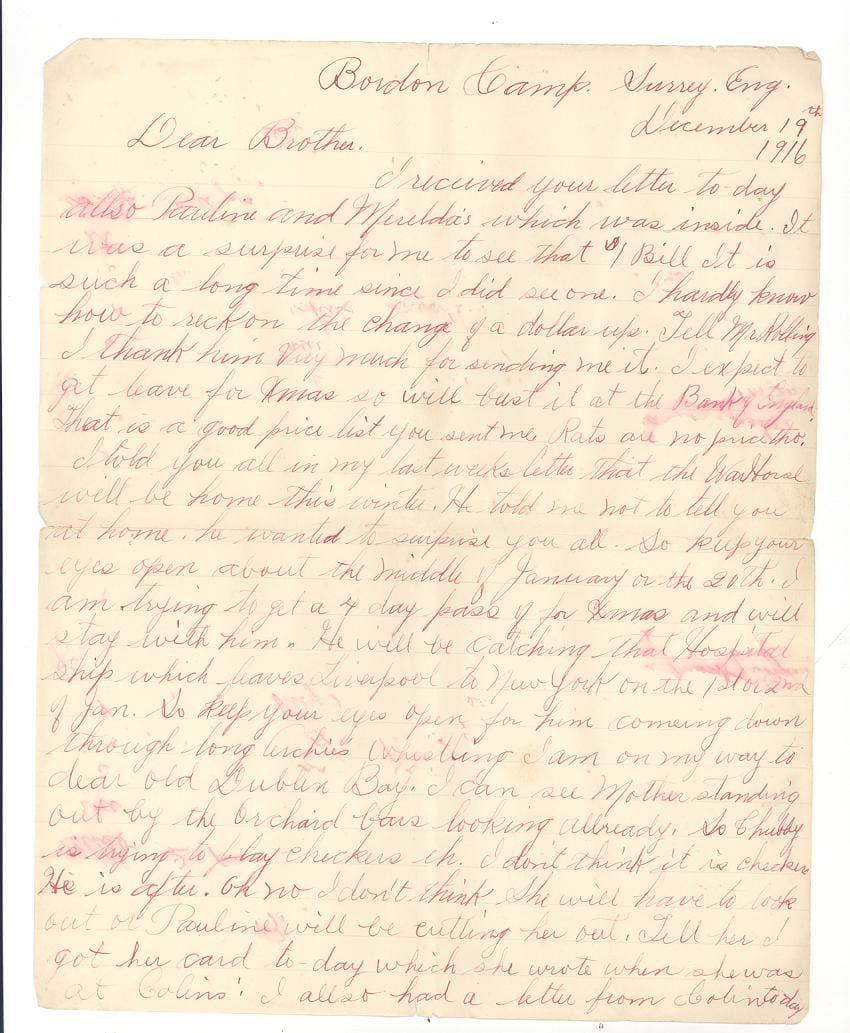 Bordon Camp. Surrey. Eng.
December 19th
1916
Dear Brother.
I received your letter to-day
allso Pauline and Merelda's which was inside. It
was a surprise for me to see that $1 Bill It is
such a long time since I did see one. I hardly know
how to reckon the change of a dollar up. Tell Mr Rolling
I thank him very much for sending me it. I expect to
get leave for Xmas so will bust it at the Bank of England.
That is a good price list you sent me Rats are no price tho.
I told you all in my last weeks letter that the War Horse
will be home this winter. He told me not to tell you
at home. he wanted to surprise you all. So keep your
eyes open about the middle of January or the 20th. I
am trying to get a 4 day pass of for Xmas and will
stay with him. He will be catching that Hospital
ship which leaves Liverpool to New York on the 1st or 2nd
of Jan. So keep your eyes open for him comeing down
through long Archies whistling I am on my way to
dear old Dublin Bay. I can see Mother standing
out by the Orchard bars looking allready. So Chubby
is trying to play checkers eh. I don't think it is checkers
He is after. Oh no I don't think She will have to look
out or Pauline will be cutting her out. Tell her I
got her card to-day which she wrote when she was
at Colins'. I allso had a letter from Colin to day